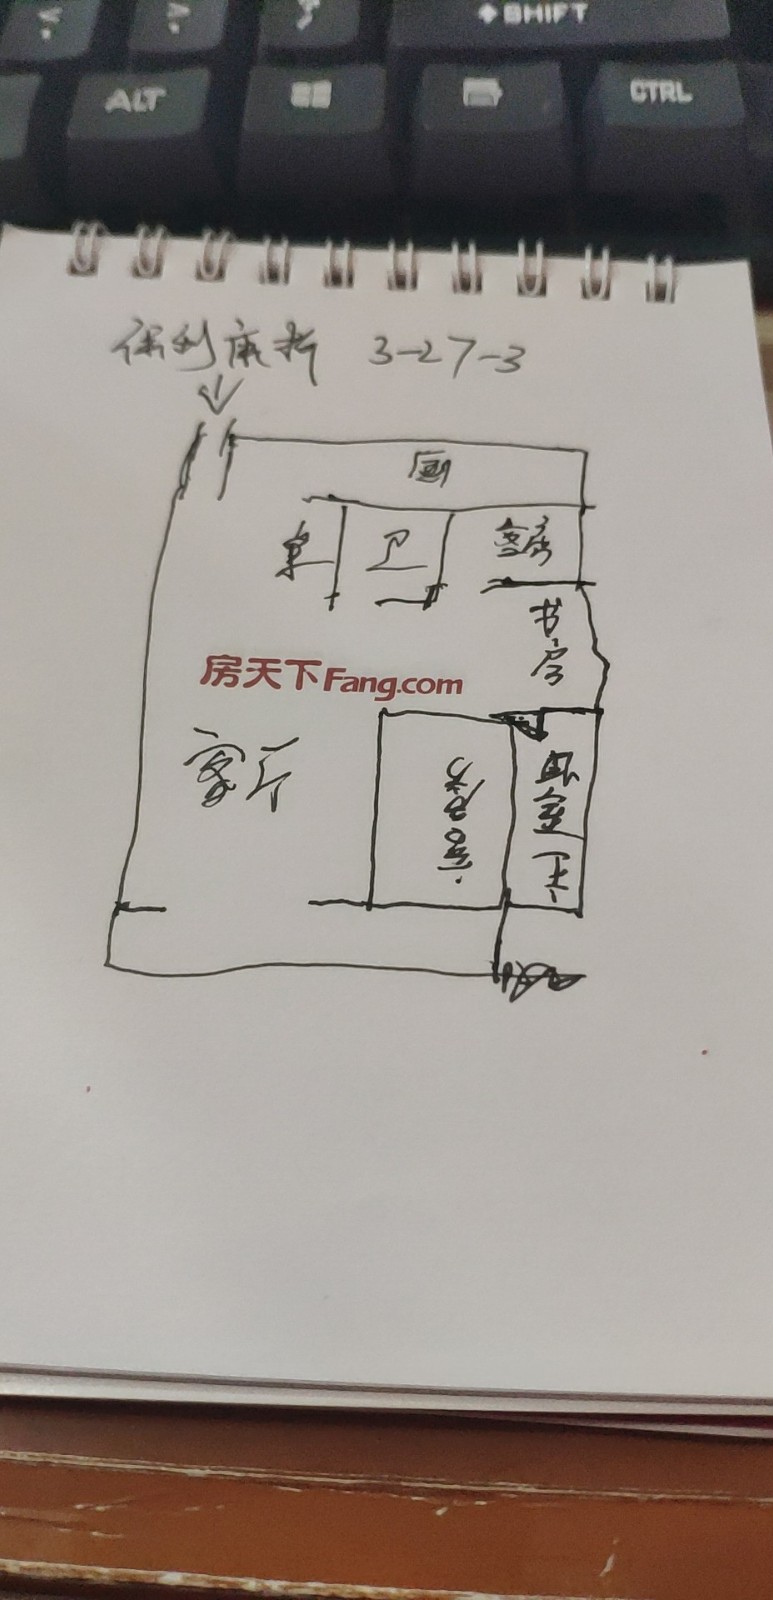 SHIFT
ALT
CTRL
保利康桥 3-27-3
厨
桌
卫
客房
书房
房天下Fang.com
客厅
客房
主